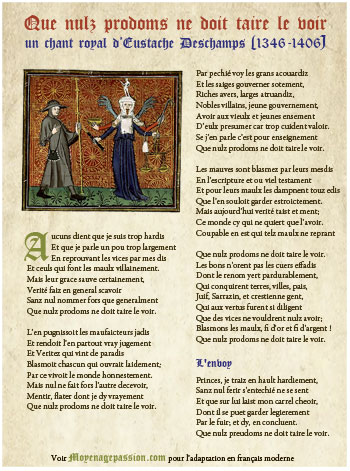 Que nulz prodoms ne doit taire le voir
un chant royal d'Eustache Deschamps (1346-1406)
Aucuns dient que je suis trop hardis
Et que je parle un pou trop largement
En reprouvant les vices par mes dis
Et ceuls qui font les maulx villainement.
Mais leur grace sauve certainement,
Verité faiz en general scavoir
Sanz nul nommer fors que generalment
Que nulz prodoms ne doit taire le voir.
L'en pugnissoit les maufaicteurs jadis
Et rendoit l'en partout vray jugement
Et Veritez qui vint de paradis
Blasmoit chascun qui ouvrait laidement;
Par ce vivoit le monde honnestement.
Mais nul ne fait fors l'autre decevoir,
Mentir, flater dont je dy vrayement
Que nulz prodoms ne doit taire le voir.
Par pechié voy les grans acouardiz
Et les saiges gouverner sotement,
Riches avers, larges atruandiz,
Nobles villains, jeune gouvernement,
Avoir aux vieulx et jeunes ensement
D'eulx presumer car trop cuident valoir.
Se j'en parle c'est pour enseignement
Que nulz prodoms ne doit taire le voir.
Les mauves sont blasmez par leurs mesdis
En l'escripture et ou viel testament
Et pour leurs maulx les dampnent touz edis
Que l'en souloit garder estroictement.
Mais aujourd'hui verité taist et ment;
Ce monde cy qui ne quiert que l'avoir.
Coupable en est qui telz maulx ne reprant
Que nulz prodoms ne doit taire le voir.
Les bons n'orent pas les cuers effadis
Dont le renom yert pardurablement,
Qui conquirent terres, villes, pais,
Juif, Sarrazin, et crestienne gent,
Qui aux vertus furent si diligent
Que des vices ne vouldrent nulz avoir;
Blasmons les maulx, fi d'or et fi d'argent !
Que nulz prodoms ne doit taire le voir.
L'envoy
Princes, je traiz en hault hardiement,
Sanz nul ferir s'entechié ne se sent
Et que sur lui laist mon carrel cheoir,
Dont il se puet garder legierement
Par le fuir; et dy, en concluent,
Que nulz preudoms ne doit taire le voir.
Voir Moyenagepassion.com pour l'adaptation en français moderne